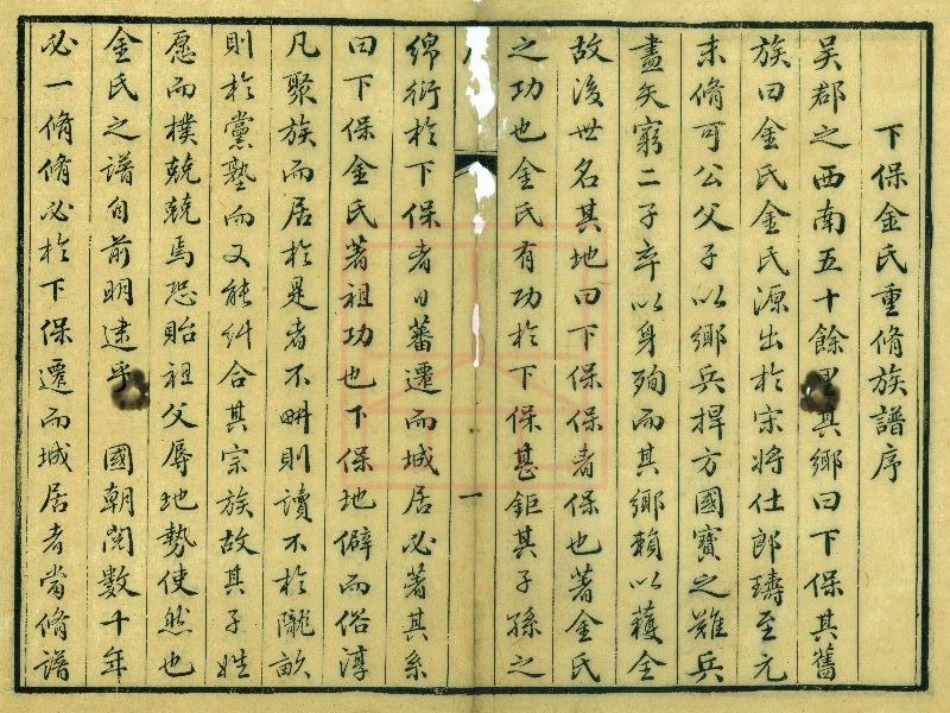 下保金氏重脩族譜序
吳郡之西南五十餘里其鄉曰下保其舊
族曰金氏金氏源出於宋將仕郎璹至元
末脩可公父子以鄉兵捍方國寶之難兵
盡矢窮二子卒以身殉而其鄉賴以蕹全
故後世名其地曰下保保者保也著金氏
之功也金氏有功於下保甚鉅其子孫之
序
一
綿衍於下保者日蕃遷而城居必著其系
曰下保金氏著祖功也下保地僻而俗淳
凡聚族而居於是者不畊則讀不於隴畝
則於黨塾而又能糾合其宗族故其子姓
愿而樸兢兢焉恐貽祖父辱地勢使然也
金氏之譜自前明逮乎 國朝閱數十年
必一脩脩必於下保遷而城居者當脩譜